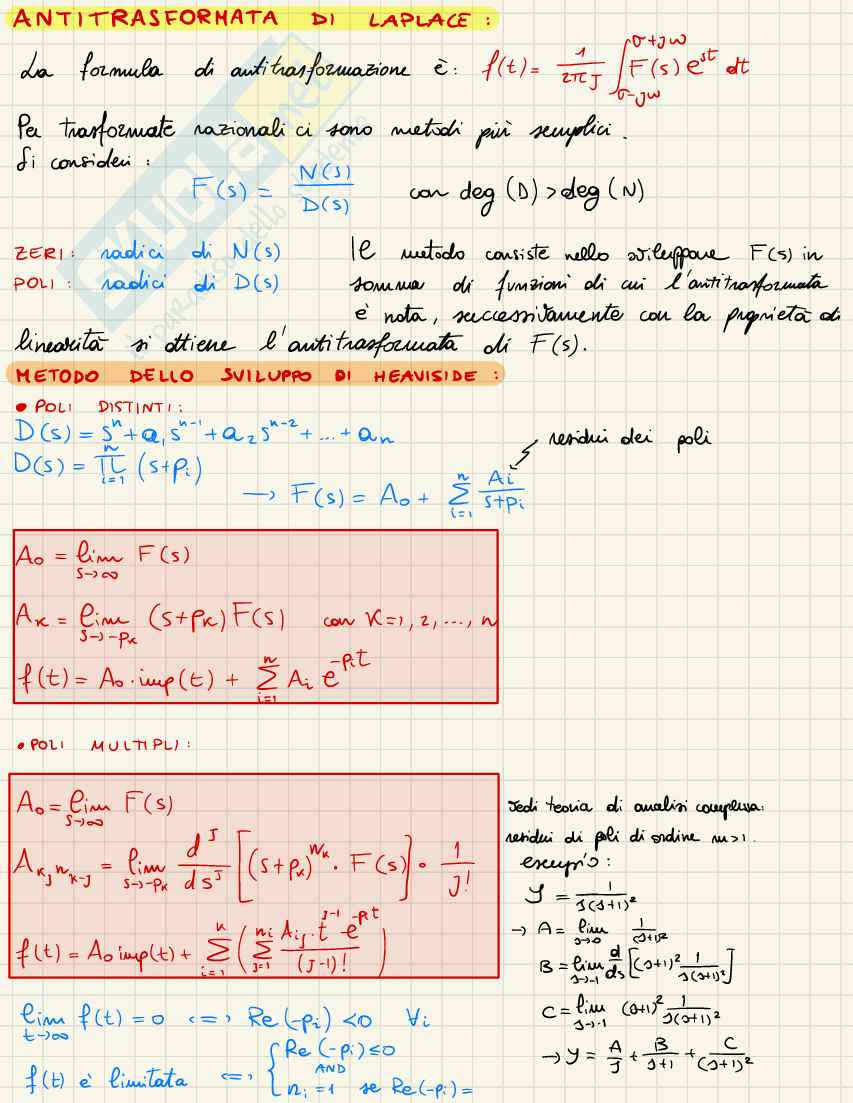 ANTITRASFORMATA DI LAPLACE:
La formula di antitrasformazione è: f(t) = 1/(2πJ) ∫_{σ-Jω}^{σ+Jω} F(s) e^{st} dt
Per trasformate razionali ci sono metodi più semplici.
Si consideri:
F(s) = N(s)/D(s) con deg(D) > deg(N)
ZERI: radici di N(s)
POLI: radici di D(s)
Il metodo consiste nello sviluppare F(s) in
somma di funzioni di cui l'antitrasformata
è nota, successivamente con la proprietà di
linearità si ottiene l'antitrasformata di F(s).
METODO DELLO SVILUPPO DI HEAVISIDE:
• POLI DISTINTI:
D(s) = s^n + a_1 s^{n-1} + a_2 s^{n-2} + ... + a_n
D(s) = ∏_{i=1}^{n} (s+p_i)
→ F(s) = A_0 + ∑_{i=1}^{n} A_i/(s+p_i)
residui dei poli
A_0 = lim_{s→∞} F(s)
A_k = lim_{s→-p_k} (s+p_k) F(s) con k=1, 2, ..., n
f(t) = A_0 · imp(t) + ∑_{i=1}^{n} A_i e^{-p_i t}
• POLI MULTIPLI:
A_0 = lim_{s→∞} F(s)
A_{k,n_{k-J}} = lim_{s→-p_k} d^J/ds^J [(s+p_k)^{n_k} · F(s)] · 1/J!
f(t) = A_0 imp(t) + ∑_{i=1}^{k} (∑_{J=1}^{n_i} A_{iJ} · t^{J-1} e^{-p_i t}/(J-1)!)
vedi teoria di analisi complessa:
residui di poli di ordine m>1.
esempio:
Y = 1/(s(s+1)^2)
→ A = lim_{s→0} 1/(s+1)^2
B = lim_{s→-1} d/ds [(s+1)^2 1/(s(s+1)^2)]
C = lim_{s→-1} (s+1)^2 1/(s(s+1)^2)
→ Y = A/s + B/(s+1) + C/(s+1)^2
lim_{t→∞} f(t) = 0 <=> Re(-p_i) < 0 ∀i
f(t) è limitata <=> { Re(-p_i) ≤ 0
AND
n_i = 1 se Re(-p_i) =
SKUOLA.net
il paradiso dello studente